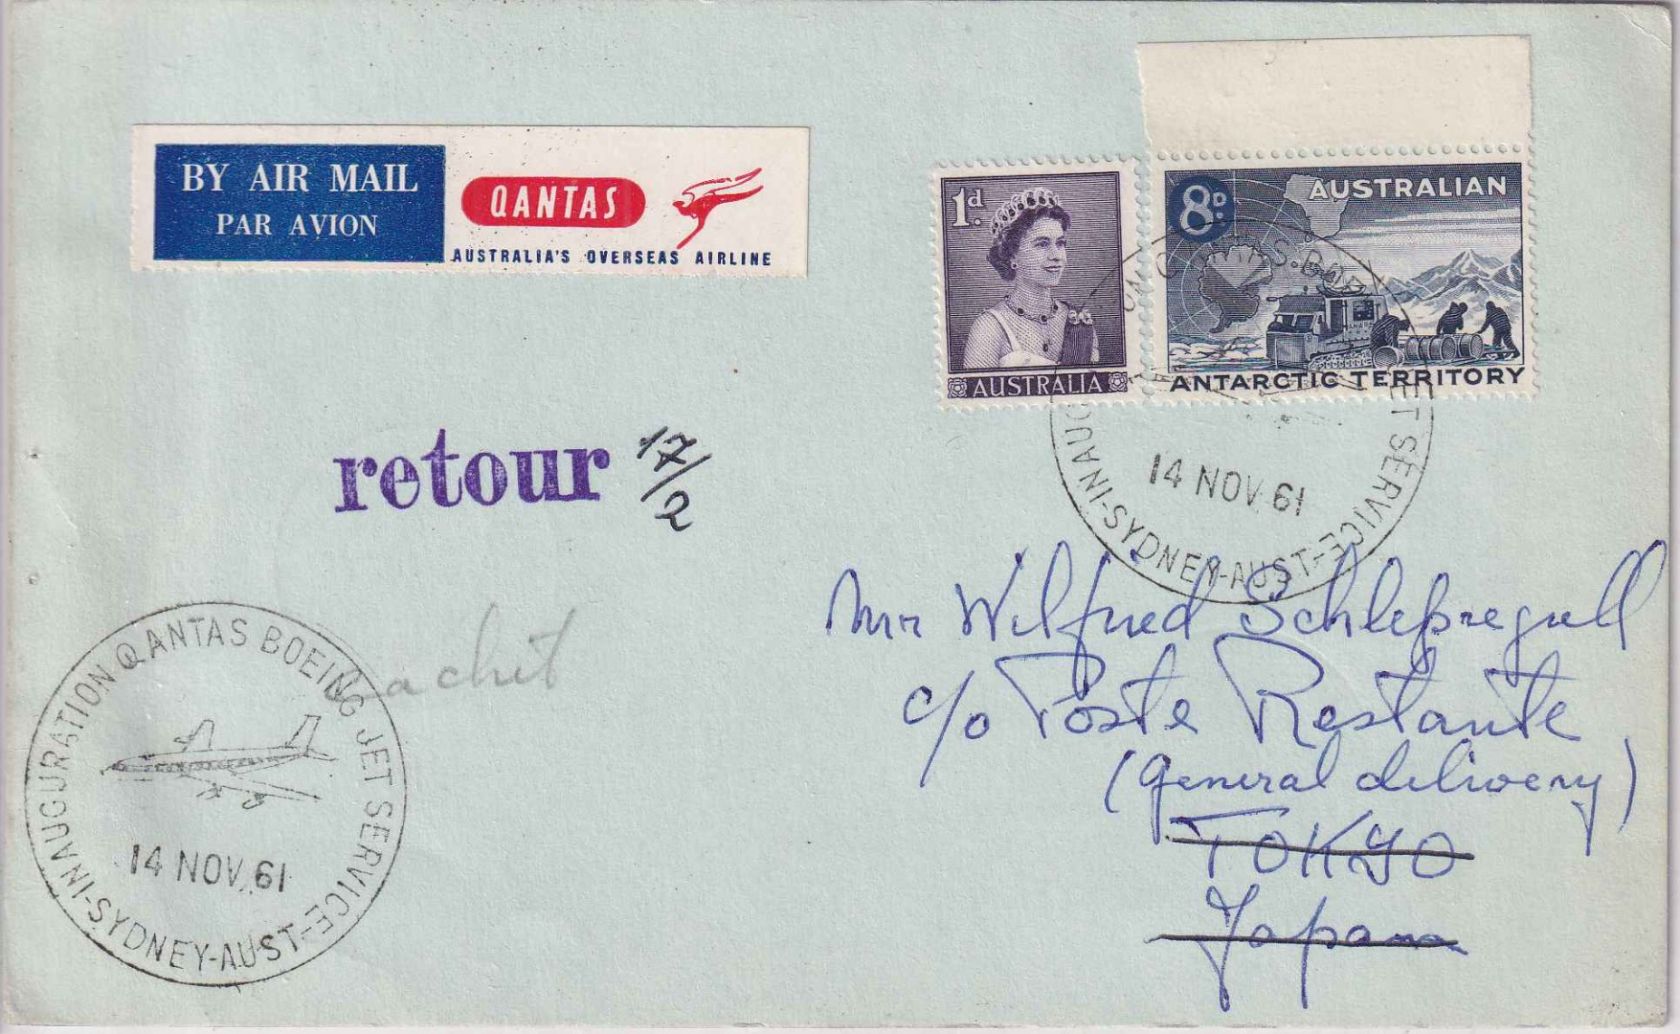 BY AIR MAIL
PAR AVION
QANTAS
AUSTRALIA'S OVERSEAS AIRLINE
1d.
AUSTRALIA
8D.
AUSTRALIAN
ANTARCTIC TERRITORY
QANTAS BOEING JET SERVICE
14 NOV 61
INAUGURATION-SYDNEY-AUST-
retour 17/2
Mr Wilfred Schlepregull
c/o Poste Restante
(general delivery)
TOKYO
Japan
cachet
INAUGURATION QANTAS BOEING JET SERVICE
14 NOV. 61
-SYDNEY-AUST-